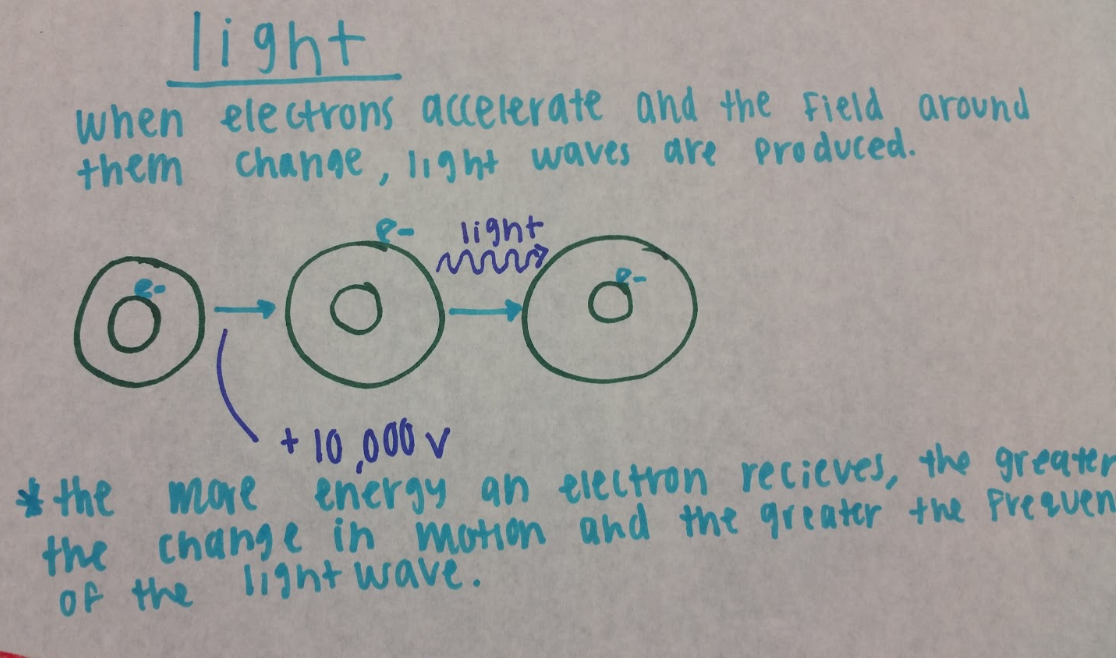 light
when electrons accelerate and the field around
them change, light waves are produced.
e- light
e- e-
+ 10,000 V
* the more energy an electron recieves, the greater
the change in motion and the greater the frequen
of the light wave.